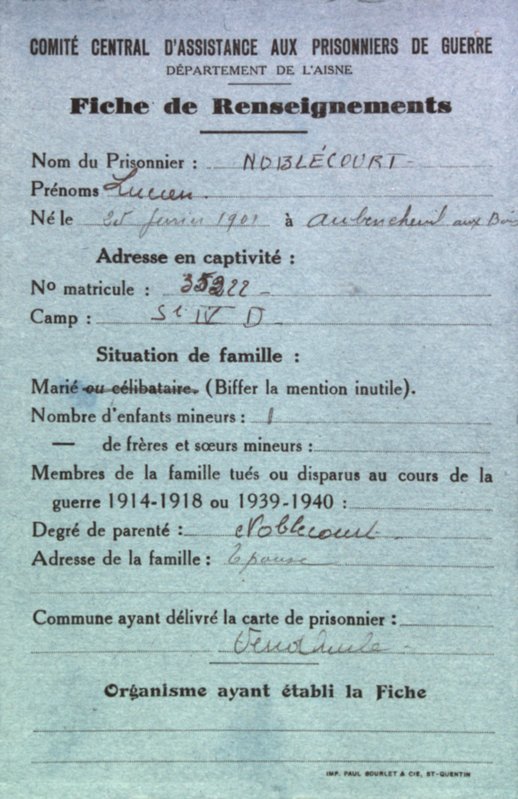 COMITÉ CENTRAL D'ASSISTANCE AUX PRISONNIERS DE GUERRE
DÉPARTEMENT DE L'AISNE
Fiche de Renseignements
Nom du Prisonnier : NOBLÉCOURT
Prénoms Lucien
Né le février 1901 à Aubencheul aux Bois
Adresse en captivité :
No matricule : 35222
Camp : St IV D
Situation de famille :
Marié ou célibataire. (Biffer la mention inutile).
Nombre d'enfants mineurs : 1
— de frères et sœurs mineurs :
Membres de la famille tués ou disparus au cours de la
guerre 1914-1918 ou 1939-1940 :
Degré de parenté : Noblecourt
Adresse de la famille : Epouse
Commune ayant délivré la carte de prisonnier :
Vendhuile
Organisme ayant établi la Fiche
IMP. PAUL BOURLET & CIE, ST-QUENTIN